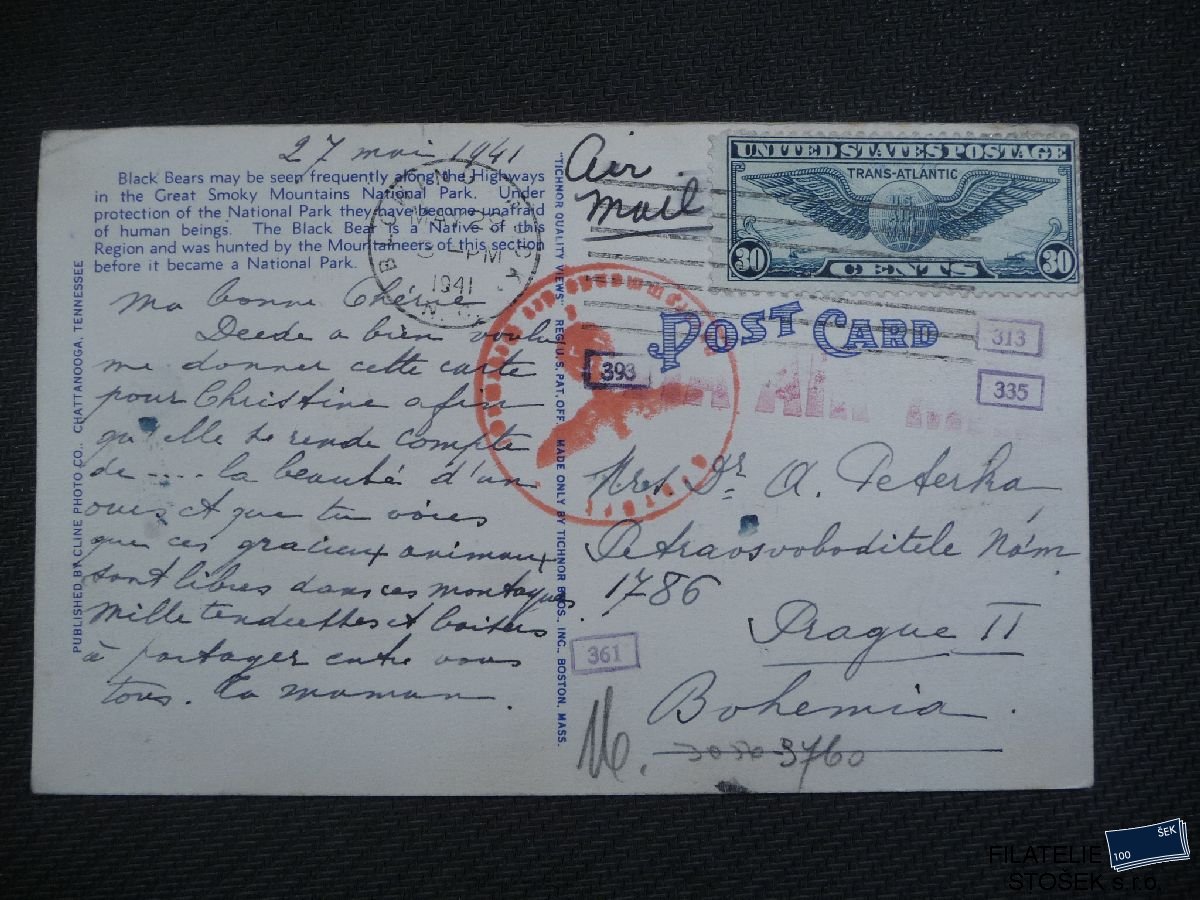 27 mai 1941
Black Bears may be seen frequently along the Highways
in the Great Smoky Mountains National Park. Under
protection of the National Park they have become unafraid
of human beings. The Black Bear is a Native of this
Region and was hunted by the Mountaineers of this section
before it became a National Park.
Ma bonne Chérie
Deede a bien voulu
me donner cette carte
pour Christine afin
qu'elle se rende compte
de .... la beauté d'un
ours et que tu voies
que ces gracieux animaux
sont libres dans ces montagnes.
Mille tendresses et baisers
à partager entre vous
tous. Ta maman.
PUBLISHED BY CLINE PHOTO CO., CHATTANOOGA, TENNESSEE
"TICHNOR QUALITY VIEWS" REG. U. S. PAT. OFF. MADE ONLY BY TICHNOR BROS., INC., BOSTON, MASS.
MAY 28
PM
1941
Air
Mail
UNITED STATES POSTAGE
TRANS-ATLANTIC
U.S.
AIR MAIL
30 CENTS 30
POST CARD
313
393
335
Mrs Dr A. Peterka
Petraosvoboditele Nám.
1786
Prague II
Bohemia.
361
3760
100 ŠEK
FILATELIE
STOŠEK s.r.o.